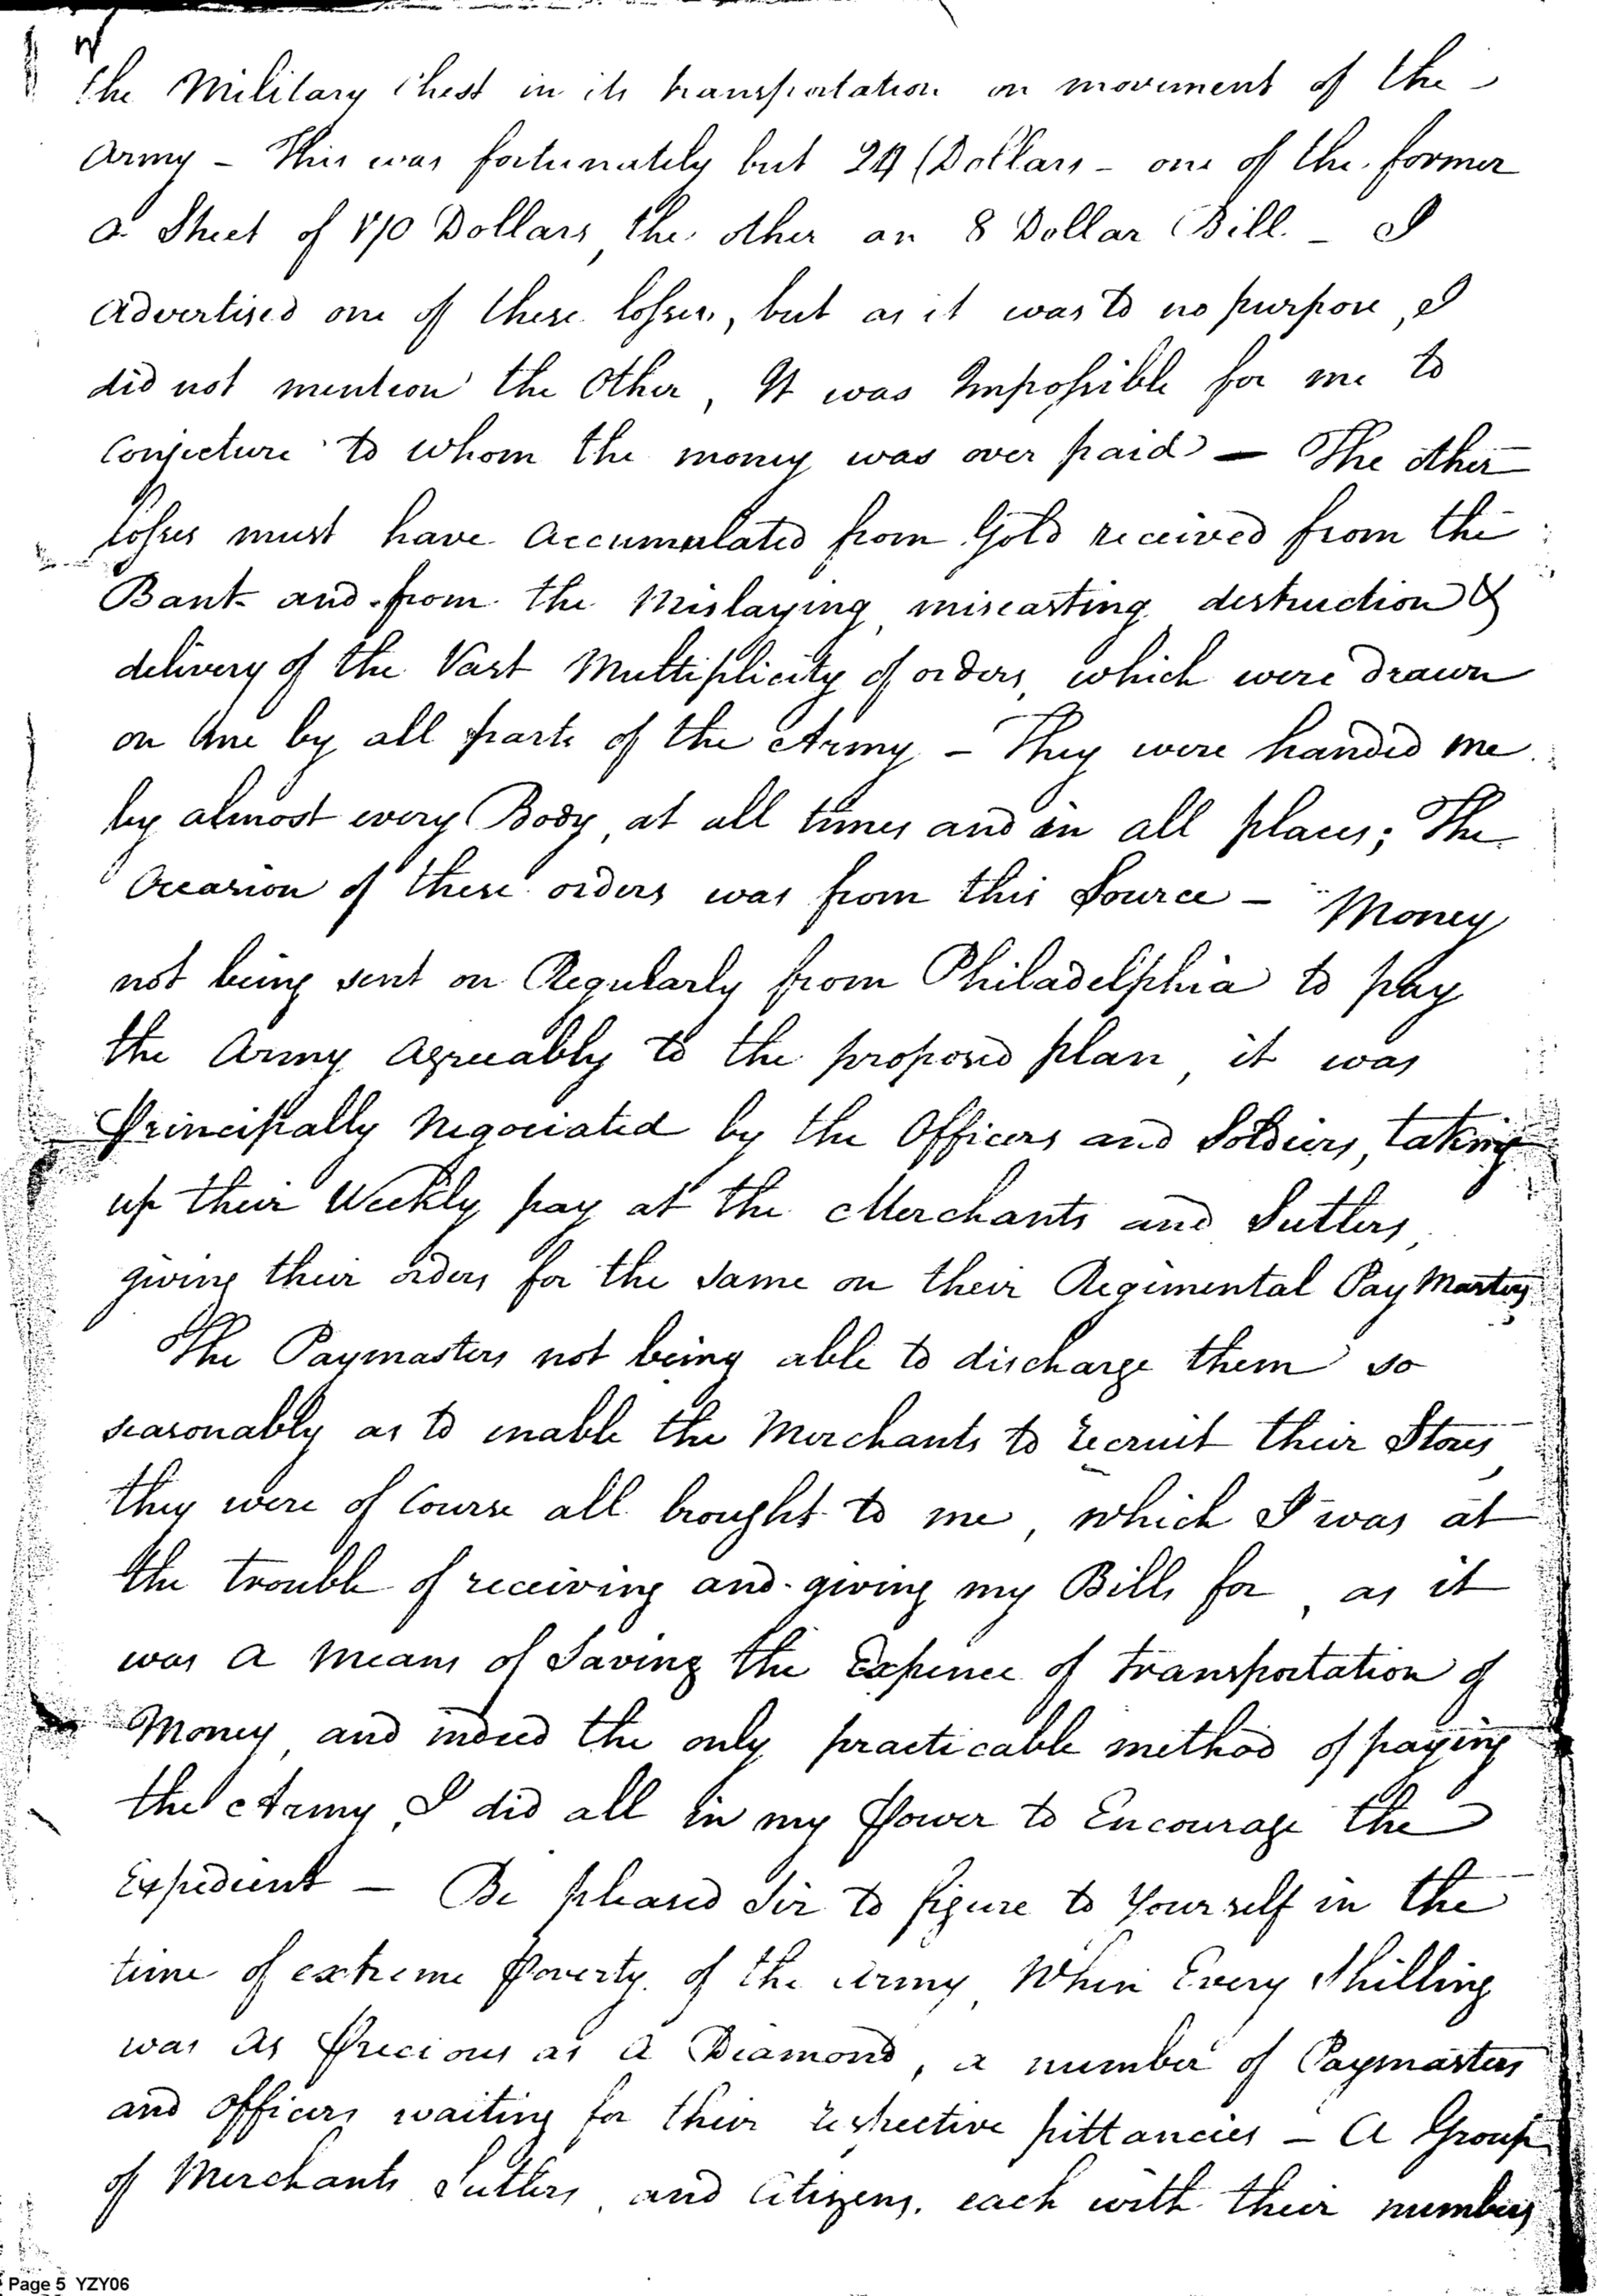 the Military Chest in its transportation on movement of the
Army – This was fortunately but (Dollars – one of the former
a Sheet of Dollars, the other an 8 Dollar Bill. – I
advertised one of these losses, but as it was to no purpose, I
did not mention the Other, It was Impossible for me to
Conjecture to whom the money was over paid – The other
losses must have accumulated from Gold received from the
Bank and from the Mislaying, miscasting, destruction &
delivery of the Vast Multiplicity of orders, which were drawn
on me by all parts of the Army – They were handed me
by almost every Body, at all times and in all places; The
Occasion of these orders was from this Source – Money
not being sent on Regularly from Philadelphia to pay
the Army Agreeably to the proposed plan, it was
Principally Negociated by the Officers and Soldiers, taking
up their Weekly pay at the Merchants and Sutlers,
giving their orders for the same on their Regimental Pay Masters
The Paymasters not being able to discharge them so
seasonably as to enable the Merchants to recruit their Stores,
they were of Course all brought to me, which I was at
the trouble of receiving and giving my Bills for, as it
was a Means of Saving the Expence of transportation of
Money, and indeed the only practicable method of paying
the Army, I did all in my Power to Encourage the
Expedient – Be pleased Sir to figure to Yourself in the
time of extreme Poverty of the Army, When Every Shilling
was as Precious as a Diamond, a number of Paymasters
and Officers waiting for their respective pittancies – A Group
of Merchants Sutlers, and Citizens, each with their numbers
Page 5 YZY06